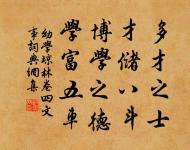 多才之士
才储八斗
博學之儒
學富五車
幼學琼林卷四文
事詞典網集